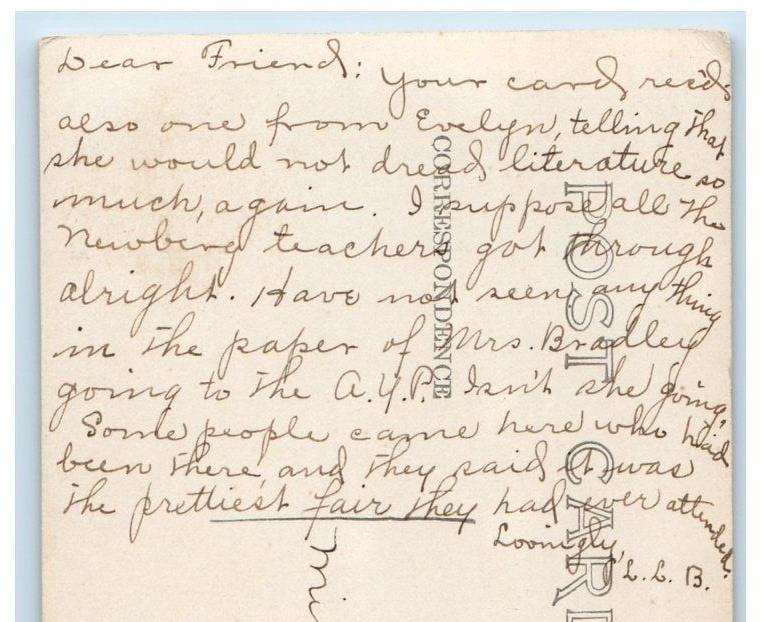 Dear Friend: Your card rec'd
also one from Evelyn, telling that
she would not dread literature so
much, again. I suppose all the
Newberg teachers got through
alright. Have not seen any thing
in the paper of Mrs. Bradley
going to the A.Y.P. Isn't she going?
Some people came here who had
been there, and they said it was
the prettiest fair they had ever attended.
Lovingly,
L. L. B.
CORRESPONDENCE
POST CARD